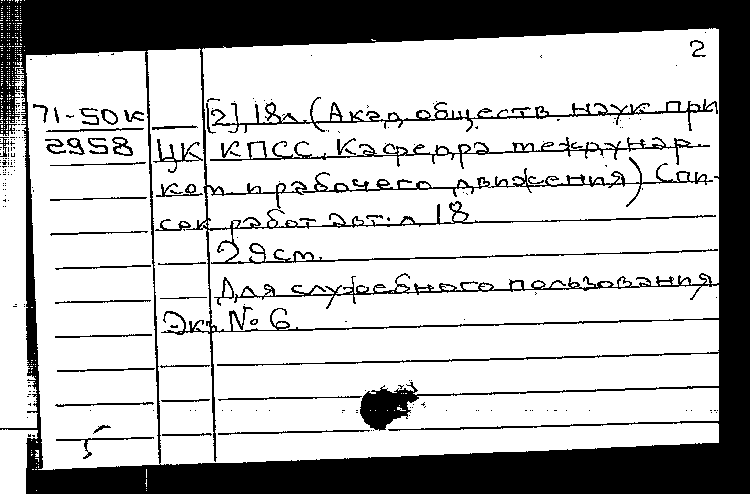 2
71-50к [2], 18л. (Акад. обществ. наук при
2958 ЦК КПСС. Кафедра междунар.
ком. и рабочего движения) Спи-
сок работ авт.: л. 18
29см.
Для служебного пользования
Экз. № 6.
5